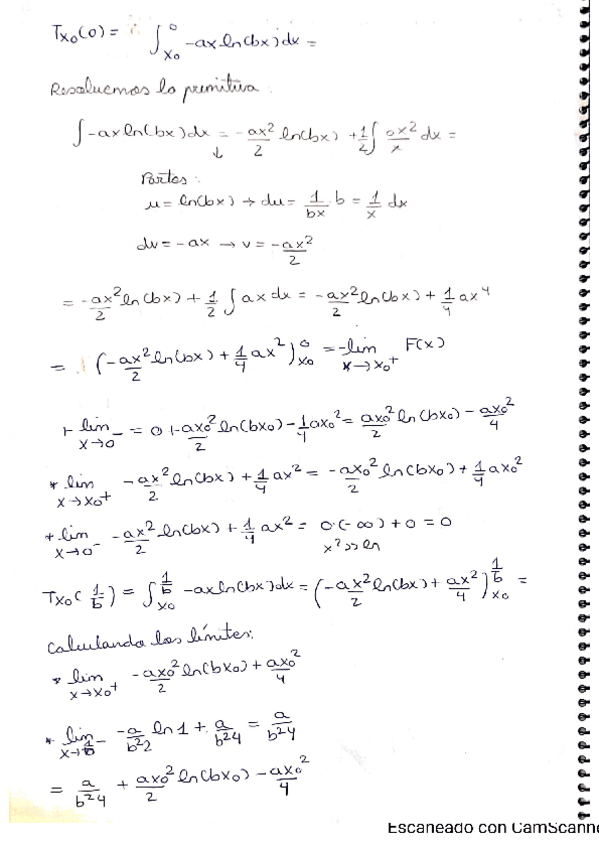 Tx₀(0) = ∫_{x₀}^{0} -ax ln(bx)dx =
Resolvemos la primitiva:
∫-ax ln(bx)dx = -ax²/2 ln(bx) + 1/2 ∫ ax²/x dx =
↓
Partes:
u = ln(bx) → du = 1/bx · b = 1/x dx
dv = -ax → v = -ax²/2
= -ax²/2 ln(bx) + 1/2 ∫ ax dx = -ax²/2 ln(bx) + 1/4 ax⁴
= (-ax²/2 ln(bx) + 1/4 ax²)_{x₀}^{0} = -lim_{x→x₀⁺} F(x)
+ lim_{x→0⁻} = 0 + -ax₀²/2 ln(bx₀) - 1/4 ax₀² = ax₀²/2 ln(bx₀) - ax₀²/4
* lim_{x→x₀⁺} -ax²/2 ln(bx) + 1/4 ax² = -ax₀²/2 ln(bx₀) + 1/4 ax₀²
* lim_{x→0⁻} -ax²/2 ln(bx) + 1/4 ax² = 0·(-∞) + 0 = 0
x² >> ln
Tx₀(1/b) = ∫_{x₀}^{1/b} -ax ln(bx)dx = (-ax²/2 ln(bx) + ax²/4)_{x₀}^{1/b} =
Calculando los límites:
* lim_{x→x₀⁺} -ax₀²/2 ln(bx₀) + ax₀²/4
* lim_{x→1/b⁻} -a/b²2 ln 1 + a/b²4 = a/b²4
= a/b²4 + ax₀²/2 ln(bx₀) - ax₀²/4
Escaneado con CamScanne